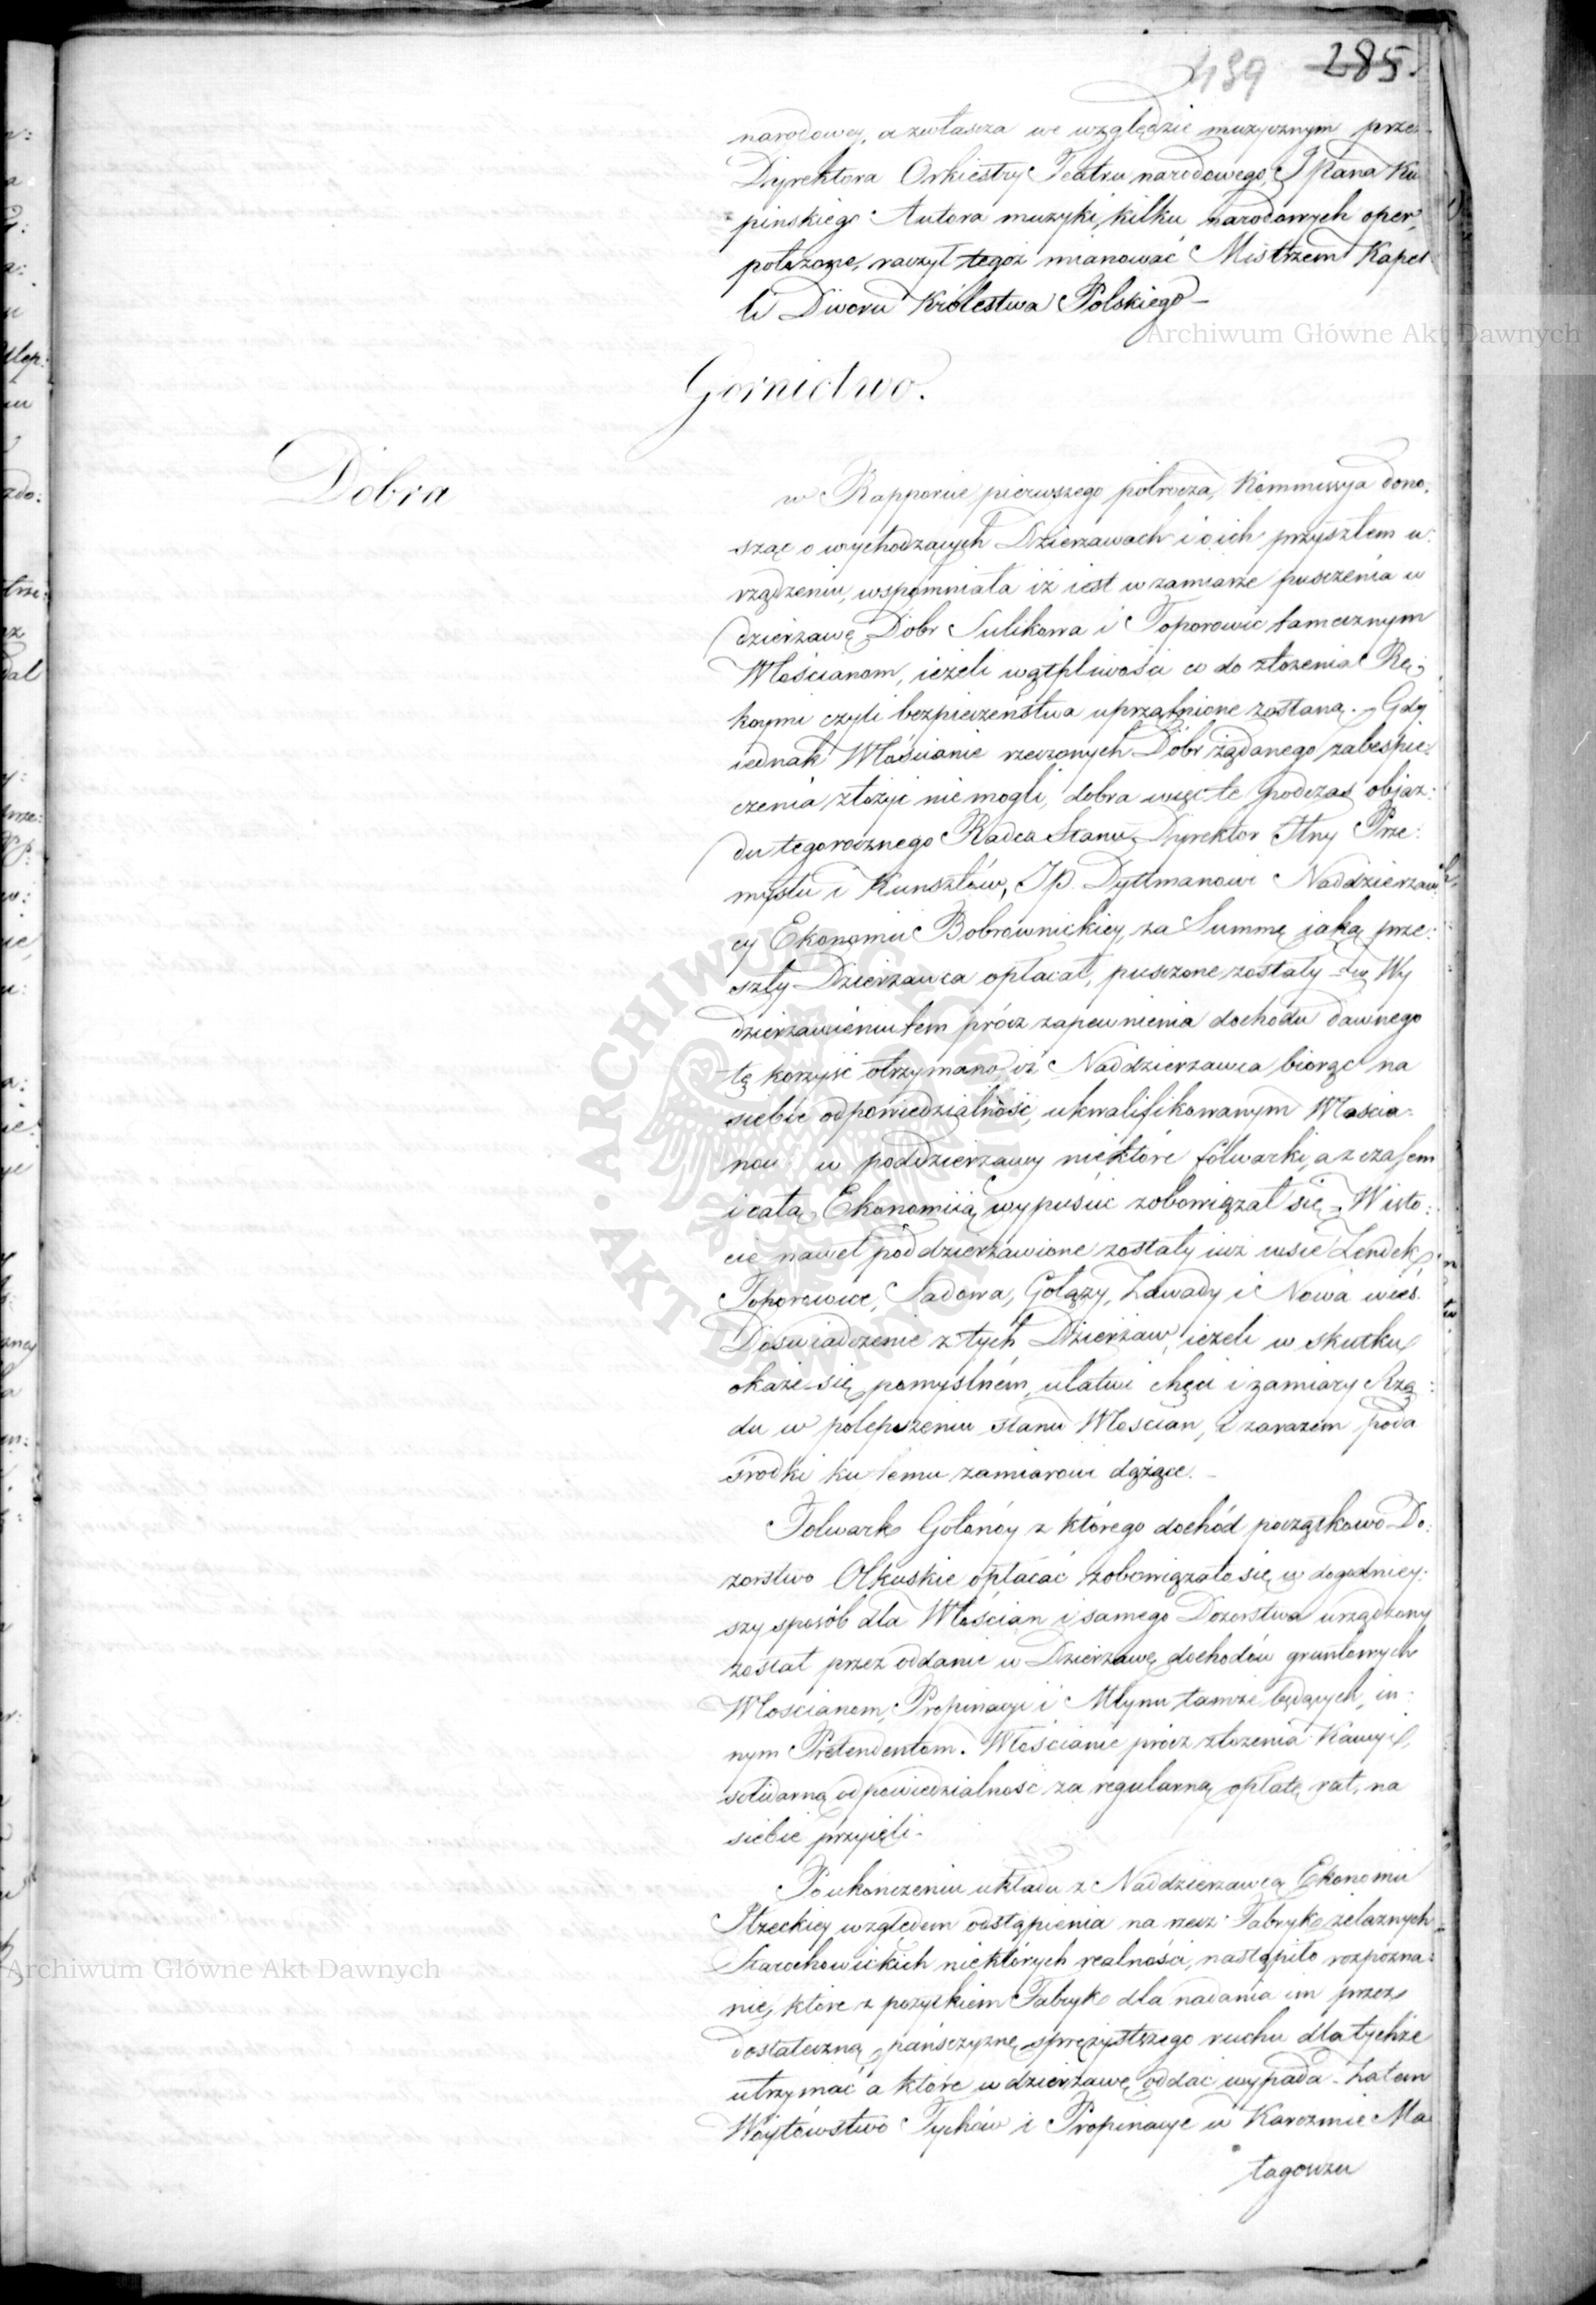 439 285.
narodowey, a zwłascza we względzie muzycznym przez
Dyrektora Orkiestry Teatru narodowego, JPana Kur
pinskiego Autora muzyki kilku narodowych oper,
położone, raczył tegoż mianować Mistrzem Kapel
li Dworu Królestwa Polskiego –
Gornictwo.
Dobra
w Rapporcie pierwszego półrocza, Kommissya dono:
sząc o wychodzących Dzierzawach i o ich przyszłem u:
rządzeniu, wspomniała iż iest w zamiarze pusczenia w
dzierzawę Dobr Sulikowa i Toporowic tamecznym
Włościanom, ieżeli wątpliwości co do złożenia Rę:
koymi czyli bezpieczeństwa uprzątnione zostaną. – Gdy
iednak Włościanie rzeczonych Dóbr żądanego zabespie:
czenia złożyć nie mogli, dobra więc te podczas objaz:
du tegorocznego Radca Stanu Dyrektor Jlny Prze:
mysłu i Kunsztów, JP. Dyttmanowi Naddzierzaw
cy Ekonomii Bobrownickiey, za Summę jaką prze:
szły Dzierzawca opłacał, pusczone zostały – Wy
dzierzawieniu tem prócz zapewnienia dochodu dawnego
tę korzyść otrzymano iż Naddzierzawca biorąc na
siebie odpowiedzialność, ukwalifikowanym Włościa:
nom w poddzierzawy niektóre folwarki, a z czasem
i całą Ekonomiią wypuścić zobowiązał się – W isto:
cie nawet poddzierzawione zostały iuż wsie Lendek,
Toporowice, Sadowa, Gołązy, Zawady i Nowa wieś.
Doswiadczenie z tych Dzierżaw, ieżeli w skutku
okaże się pomyślném, ułatwi chęci i zamiary Rzą:
du w polepszeniu stanu Włoscian, i zarazem poda
środki ku temu zamiarowi dążące. –
Folwark Gołonóg z którego dochód początkowo Do:
zorstwo Olkuskie opłacać zobowiązało się, w dogodniey:
szy sposób dla Włościan i samego Dozorstwa urządzony
został przez oddanie w Dzierżawę dochodów gruntowych
Włoscianom, Propinacyi i Młynu tamże będących, in:
nym Pretendentom. Włościanie prócz złożenia Kaucyi,
solidarną odpowiedzialność za regularną opłatę rat, na
siebie przyięli –
Po ukończeniu układu z Naddzierzawcą Ekonomii
Jłzeckiey względem odstąpienia na rzecz Fabryk żelaznych
Starachowickich niektórych realności, nastąpiło rozpozna:
nie, które z pożytkiem Fabryk dla nadania im przez
dostateczną pańsczyznę sprężystszego ruchu dla tychże
utrzymać a które w dzierżawę oddać wypada – Zatem
Wóytówstwo Tychów i Propinacye w Karczmie Ma
łagowzu
Archiwum Główne Akt Dawnych
Archiwum Główne Akt Dawnych
ARCHIWUM GŁÓWNE AKT DAWNYCH